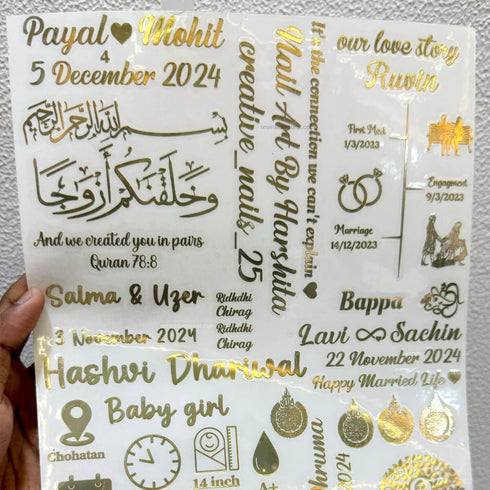 Payal ♥ Mohit
4
5 December 2024
بِسْمِ اللهِ الرَّحْمٰنِ الرَّحِيْمِ
وَخَلَقْنَاكُمْ أَزْوَاجًا
And we created you in pairs
Quran 78:8
Salma & Uzer
3 November 2024
Ridhdhi
Chirag
Ridhdhi
Chirag
It's the connection we can't explain ♥
Nail Art By Harshita
creative_nails_25
our love story
Ruvin
First Meet
1/3/2023
Engagment
9/3/2023
Marriage
14/12/2023
Bappa
Lavi ∞ Sachin
22 November 2024
Happy Married Life ♥
Hashvi Dhariwal
Baby girl
Chohatan
14 inch
A+
2024